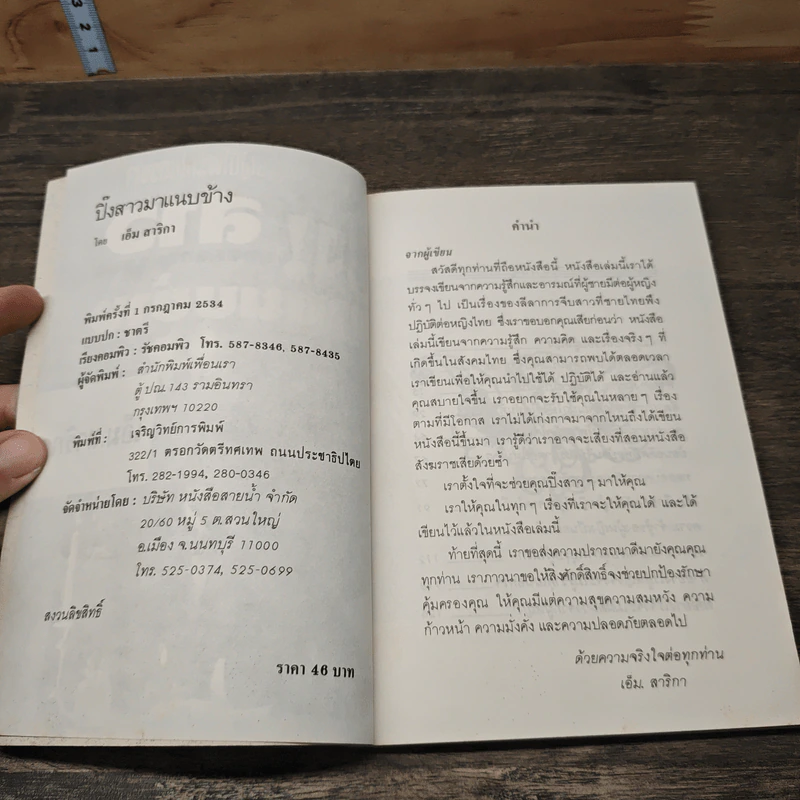 3
2
1
ปิ๊งสาวมาแนบข้าง
โดย เอ็ม สาริกา
พิมพ์ครั้งที่ 1 กรกฎาคม 2534
แบบปก : ชาตรี
เรียงคอมพิว : รัชคอมพิว โทร. 587-8346, 587-8435
ผู้จัดพิมพ์ : สำนักพิมพ์เพื่อนเรา
ตู้ ปณ. 143 รามอินทรา
กรุงเทพฯ 10220
พิมพ์ที่ : เจริญวิทย์การพิมพ์
322/1 ตรอกวัดตรีทศเทพ ถนนประชาธิปไตย
โทร. 282-1994, 280-0346
จัดจำหน่ายโดย : บริษัท หนังสือสายน้ำ จำกัด
20/60 หมู่ 5 ต.สวนใหญ่
อ.เมือง จ.นนทบุรี 11000
โทร. 525-0374, 525-0699
สงวนลิขสิทธิ์
ราคา 46 บาท
คำนำ
จากผู้เขียน
สวัสดีทุกท่านที่ถือหนังสือนี้ หนังสือเล่มนี้เราได้
บรรจงเขียนจากความรู้สึกและอารมณ์ที่ผู้ชายมีต่อผู้หญิง
ทั่ว ๆ ไป เป็นเรื่องของลีลาการจีบสาวที่ชายไทยพึง
ปฏิบัติต่อหญิงไทย ซึ่งเราขอบอกคุณเสียก่อนว่า หนังสือ
เล่มนี้เขียนจากความรู้สึก ความคิด และเรื่องจริง ๆ ที่
เกิดขึ้นในสังคมไทย ซึ่งคุณสามารถพบได้ตลอดเวลา
เราเขียนเพื่อให้คุณนำไปใช้ได้ ปฏิบัติได้ และอ่านแล้ว
คุณสบายใจขึ้น เราอยากจะรับใช้คุณในหลาย ๆ เรื่อง
ตามที่มีโอกาส เราไม่ได้เก่งกาจมาจากไหนถึงได้เขียน
หนังสือนี้ขึ้นมา เรารู้ดีว่าเราอาจจะเสี่ยงที่สอนหนังสือ
สังฆราชเสียด้วยซ้ำ
เราตั้งใจที่จะช่วยคุณปิ๊งสาว ๆ มาให้คุณ
เราให้คุณในทุก ๆ เรื่องที่เราจะให้คุณได้ และได้
เขียนไว้แล้วในหนังสือเล่มนี้
ท้ายที่สุดนี้ เราขอส่งความปรารถนาดีมายังคุณคุณ
ทุกท่าน เราภาวนาขอให้สิ่งศักดิ์สิทธิ์จงช่วยปกป้องรักษา
คุ้มครองคุณ ให้คุณมีแต่ความสุขความสมหวัง ความ
ก้าวหน้า ความมั่งคั่ง และความปลอดภัยตลอดไป
ด้วยความจริงใจต่อทุกท่าน
เอ็ม. สาริกา